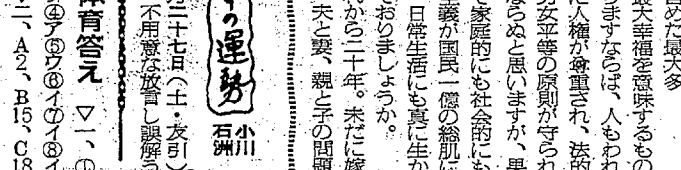 固めた最大多
最大幸福を意味するもの
りますならば、人もわれ
に人権が尊重され、法的
男女平等の原則が守られ
ならぬと思いますが、果
て家庭的にも社会的にも
主義が国民一億の総肌に
日常生活にも真に生か
ておりましょうか。
から二十年。未だに嫁
夫と妻、親と子の問題
の運勢
小川
石洲
二十七日(土・友引)
不用意な放言し誤解う
体育答え ▽一、①
④ア⑤ウ⑥イ⑦イ⑧イ
二、A2、B15、C18